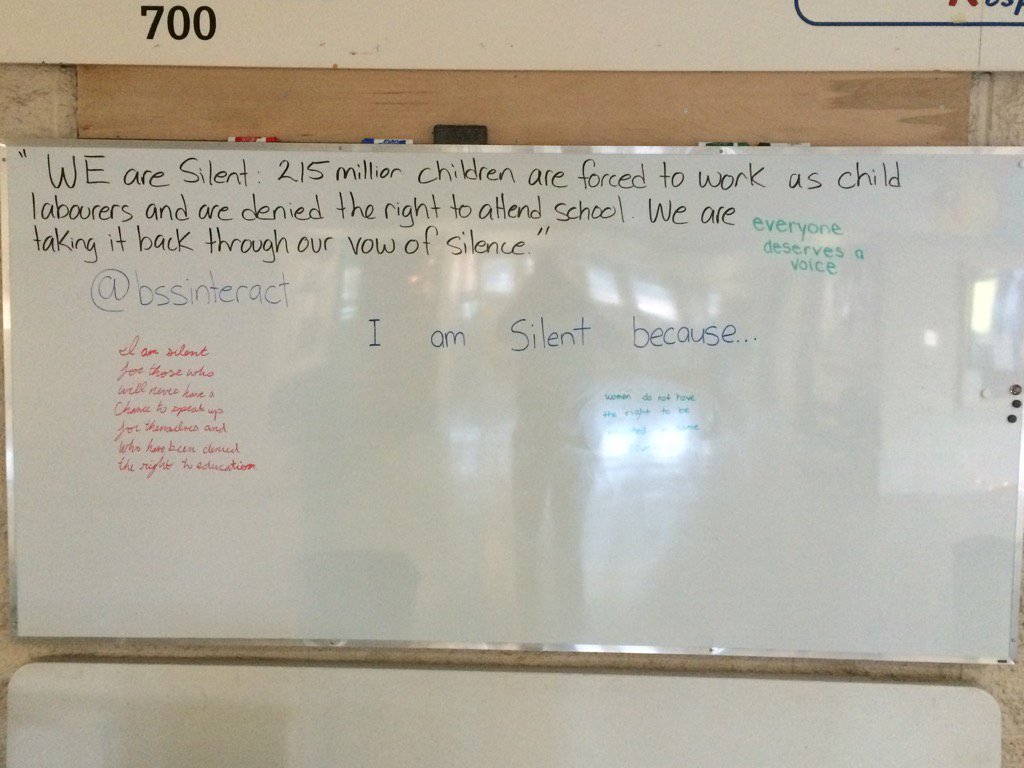 700
"WE are Silent: 215 million children are forced to work as child
labourers and are denied the right to attend school. We are
taking it back through our vow of silence."
everyone
deserves a
voice
@bssinteract
I am Silent because...
I am silent
for those who
will never have a
Chance to speak up
for themselves and
who have been denied
the right to education
women do not have
the right to be
some